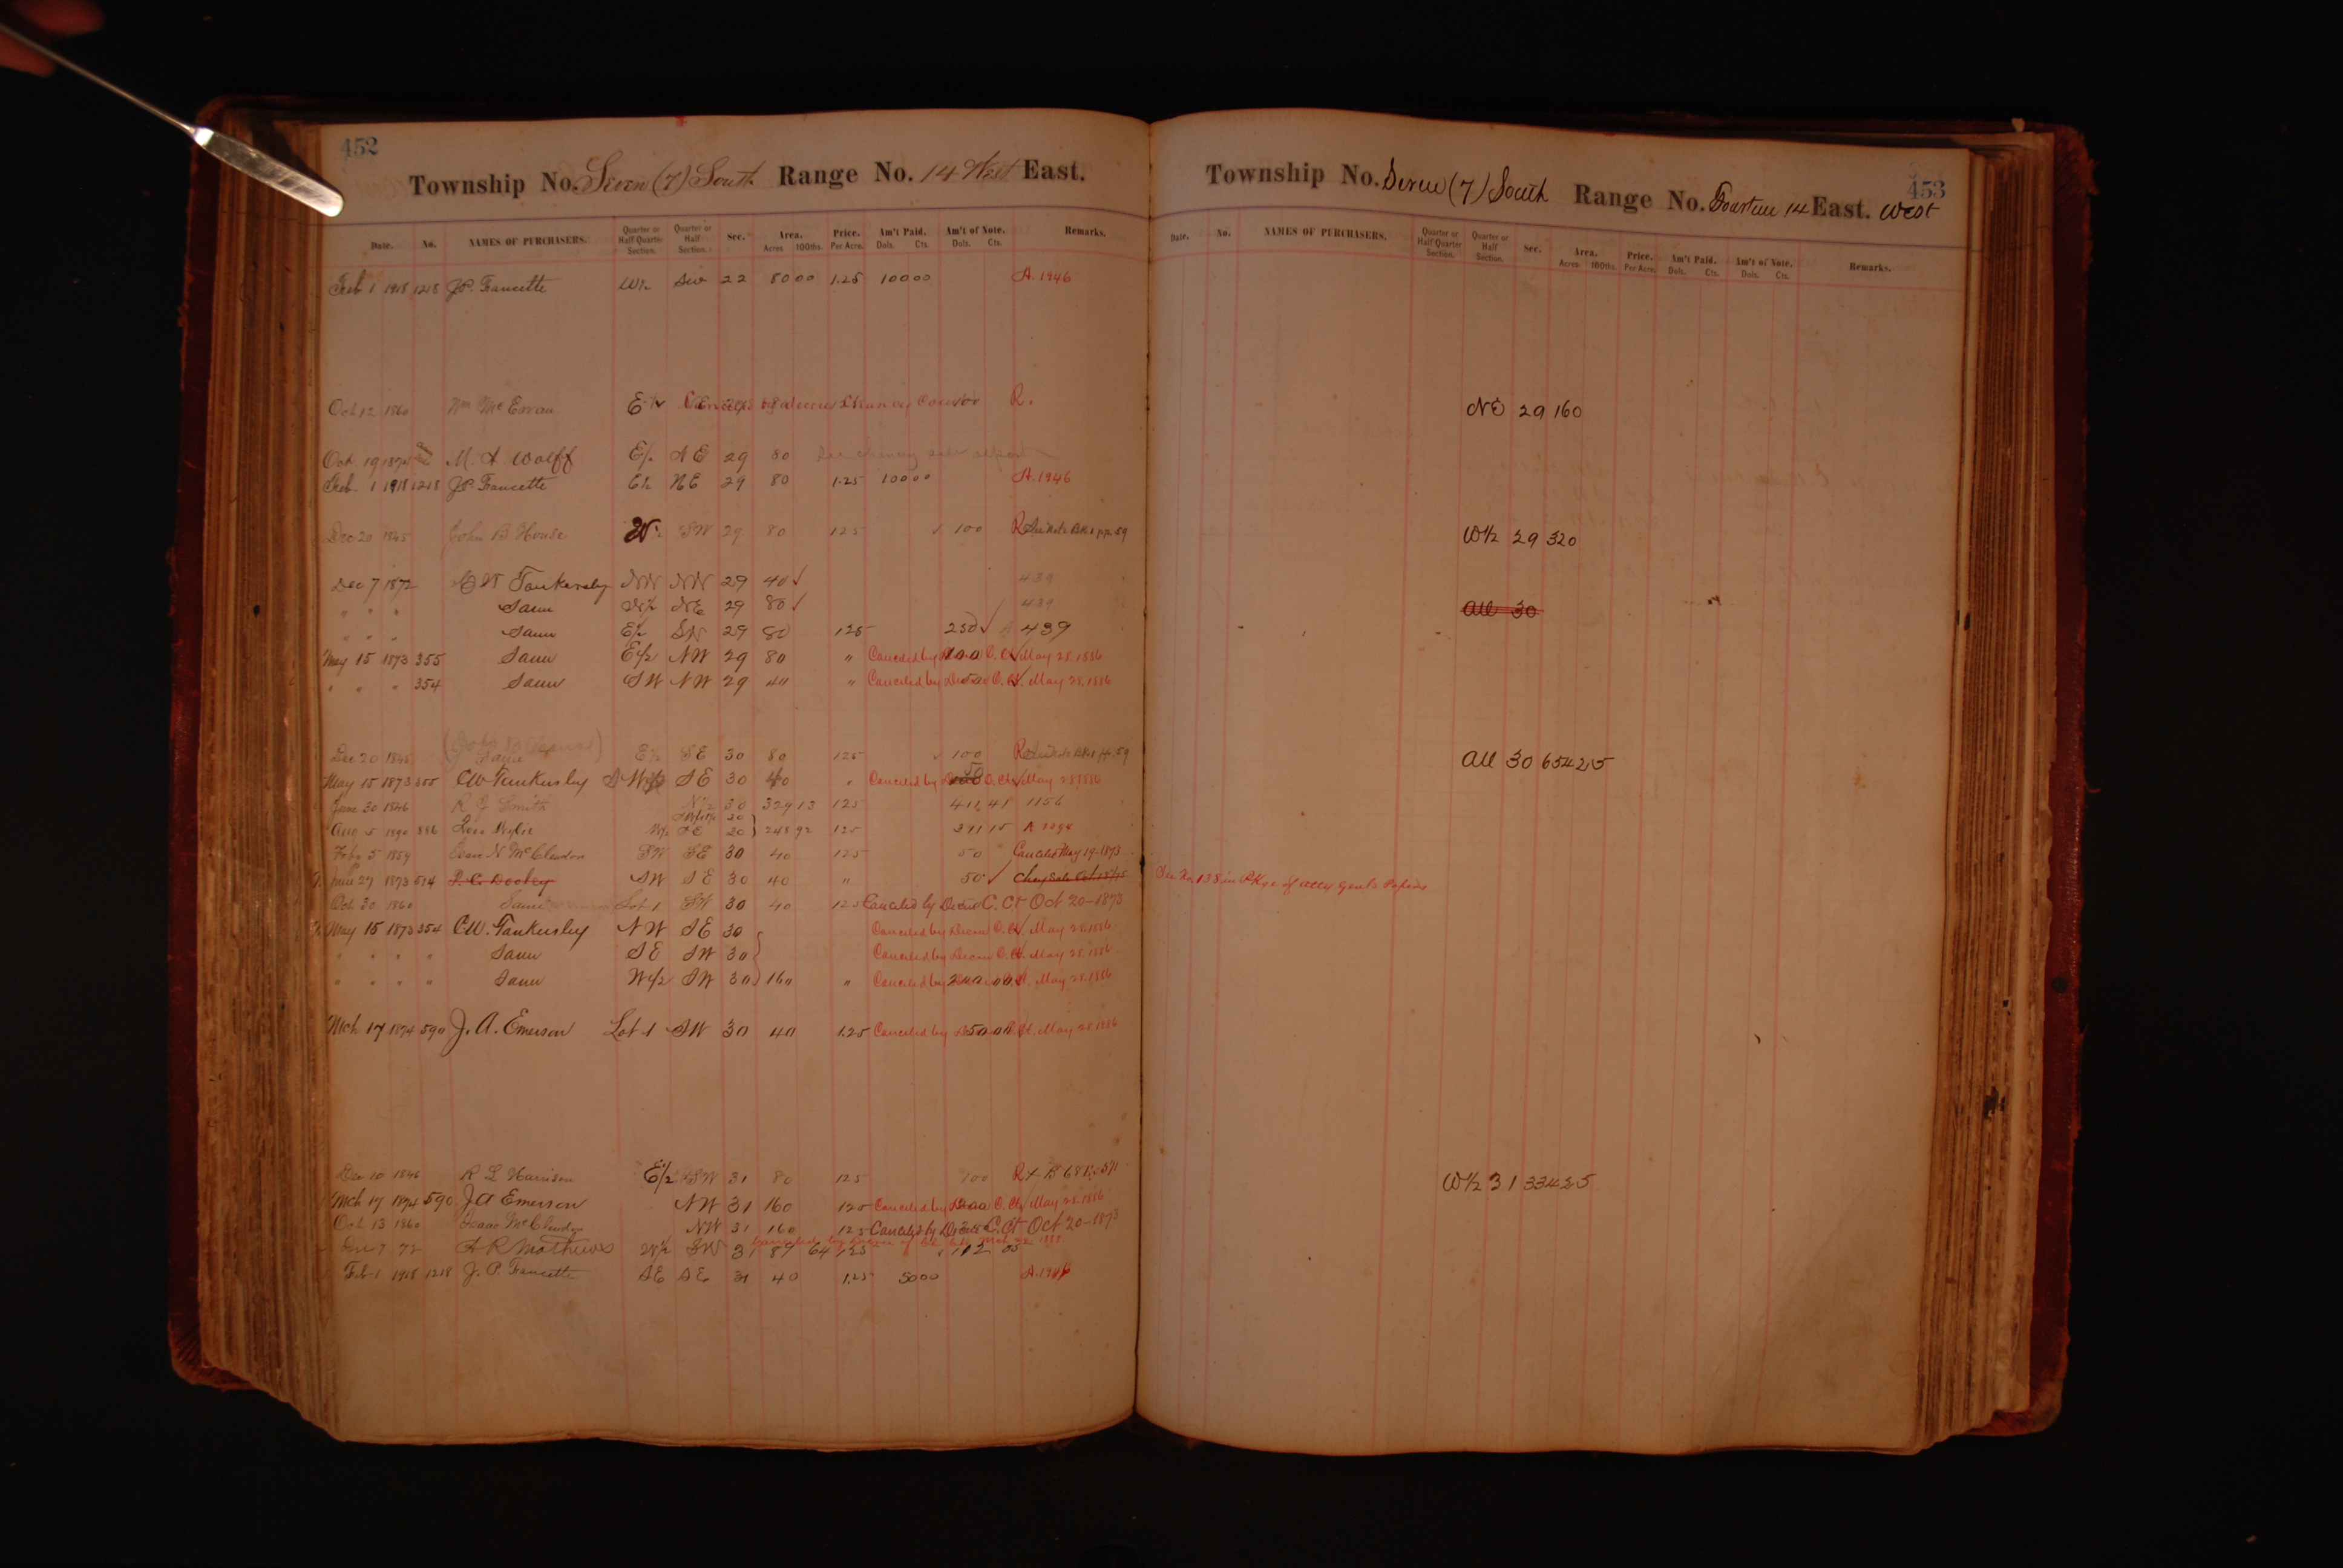 452
Township No. Seven (7) South Range No. 14 West East.
Date. No. NAMES OF PURCHASERS. Quarter or Half Quarter Section. Quarter or Half Section. Sec. Area. Acres 100ths. Price. Per Acre. Am't Paid. Dols. Cts. Am't of Note. Dols. Cts. Remarks.
Feb 1 1918 1218 J.P. Francette W½ SW 22 80 00 1.25 100 00 A. 1946
Oct 12 1860 Wm McEwan E½ R.
Oct 19 1874 M. A. Wolff E½ NE 29 80
Feb 1 1918 1218 J.P. Francette E½ NE 29 80 1.25 100 00 A. 1946
Dec 20 1845 John B. House W½ SW 29 80 125 100 R See Note Bk 1 pp. 59
Dec 7 1872 C W Tankersley NW NW 29 40 ✓ 439
" " " Same W½ NE 29 80 ✓ 439
" " " Same E½ SW 29 80 125 250 ✓ 439
May 15 1873 355 Same E½ NW 29 80 " 100 Canceled by Decree C. Ct. May 28. 1886
" " " 354 Same SW NW 29 40 " 50 Canceled by Decree C. Ct. May 28. 1886
Dec 20 1845 Same E½ SE 30 80 125 100 R See Note Bk 1 pp. 59
May 15 1873 355 C W Tankersley SE 30 40 " 50 Canceled by Decree C. Ct. May 28 1886
June 30 1846 R G Smith N½ 30 329 13 125 411.41 1156
Aug 5 1890 886 W½ SE 30 248 92 125 311 15
Feby 5 1859 Isaac N McClendon SW SE 30 40 125 50 Canceled May 19-1873
June 27 1873 514 P. C. Dooley SW SE 30 40 " 50 ✓
Oct 30 1860 Same Lot 1 SW 30 40 125 Canceled by Decree C. Ct Oct 20-1873
May 15 1873 354 C.W. Tankersley NW SE 30 Canceled by Decree C. Ct. May 28. 1886
" " " " Same SE SW 30 Canceled by Decree C. Ct. May 28. 1886
" " " " Same W½ SW 30 160 " 200 00 Canceled by Decree C. Ct. May 28. 1886
Mch 17 1874 590 J. A. Emerson Lot 1 SW 30 40 1.25 50 00 Canceled by Decree C. Ct. May 28 1886
Dec 10 1846 R L Harrison E½ SW 31 80 125 100
Mch 17 1874 590 J A Emerson NW 31 160 125 200 Canceled by Decree C. Ct. May 28. 1886
Oct 13 1860 Isaac McClendon NW 31 160 125 Canceled by Decree C. Ct Oct 20-1873
Dec 7 72 A R Mathews W½ SW 31 87 64 125 112 05
Feb 1 1918 1218 J. P. Francette SE SE 31 40 1.25 50 00 A. 1946
453
Township No. Seven (7) South Range No. Fourteen 14 East. West
Date. No. NAMES OF PURCHASERS. Quarter or Half Quarter Section. Quarter or Half Section. Sec. Area. Acres 100ths. Price. Per Acre. Am't Paid. Dols. Cts. Am't of Note. Dols. Cts. Remarks.
NE 29 160
W½ 29 320
All 30
All 30 654 25
See No. 138 in Pkge of Atty Genl's Papers
W½ 31 334 25